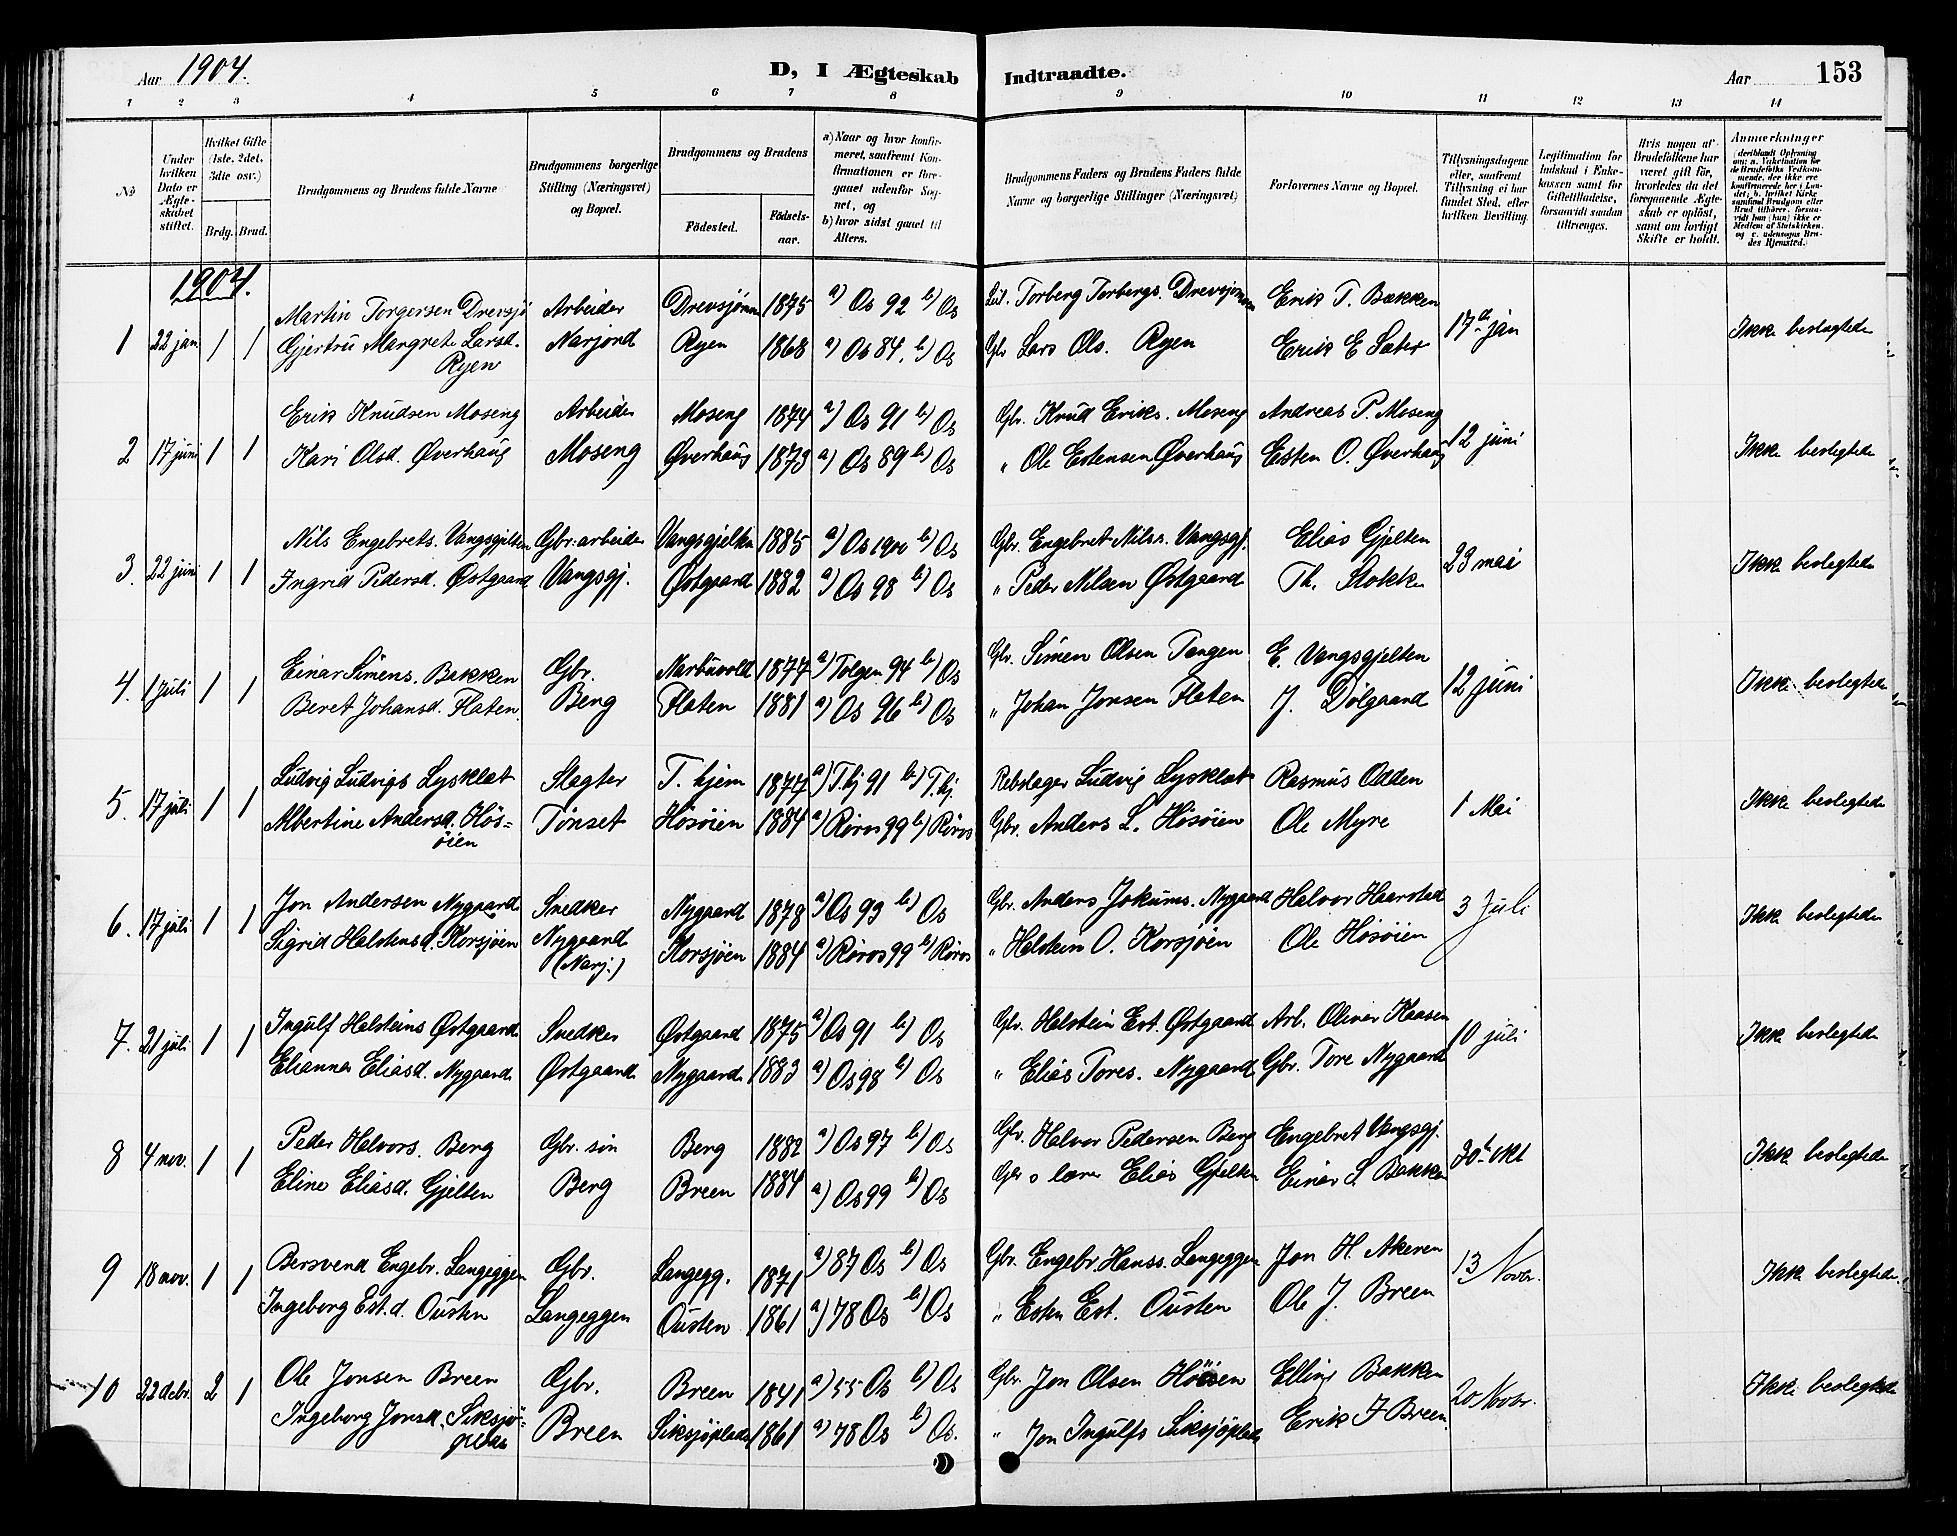 Aar 1904.
D, I Ægteskab Indtraadte.
Aar 153
1 2 3 4 5 6 7 8 9 10 11 12 13 14
No
Under hvilken Dato er Ægteskabet stiftet.
Hvilket Gifte (1ste, 2det, 3die osv.)
Brdg. Brud.
Brudgommens og Brudens fulde Navne
Brudgommens borgerlige Stilling (Næringsvei) og Bopæl.
Brudgommens og Brudens
Fødested.
Fødselsaar.
a) Naar og hvor konfirmeret, saafremt Konfirmationen er foregaaet udenfor Sognet, og
b) hvor sidst gaaet til Alters.
Brudgommens Faders og Brudens Faders fulde Navne og borgerlige Stillinger (Næringsvei)
Forlovernes Navne og Bopæl.
Tillysningsdagene eller, saafremt Tillysning ei har fundet Sted, efter hvilken Bevilling.
Legitimation for Indskud i Enkekassen samt for Giftetilladelse, forsaavidt saadan tiltrænges.
Hvis nogen af Brudefolkene har været gift før, hvorledes da det foregaaende Ægteskab er opløst, samt om lovligt Skifte er holdt.
Anmerkninger (deriblandt Oplysning om: a. Vakcination for de Brudefolks Vedkommende, der ikke ere konfirmerede her i Landet; b. hvilket Kirkesamfund Brudgom eller Brud tilhører, forsaavidt han (hun) ikke er Medlem af Statskirken, og c. udensogns Brudes Hjemsted.)
1904.
Martin Torgersen Drevsjø Arbeider Drevsjømo 1875 a) Os 92 b) Os Torberg Torbergs. Drevsjømoen Erik T. Bakken
1 22 jan 1 1 Gjertru Margrete Larsd. Ryen Narjord Ryen 1868 a) Os 84. b) Os Gbr Lars Ols. Ryen Erik E Sæter 17de jan Ikke beslegtede
Erik Knudsen Moseng Arbeider Moseng 1874 a) Os 91 b) Os Gbr. Knud Eriks. Moseng Andreas P. Moseng
2 17 juni 1 1 Kari Olsd. Øverhaug Moseng Øverhaug 1873 a) Os 89 b) Os " Ole Estensen Øverhaug Esten O. Øverhaug 12 juni Ikke beslegtede
Nils Engebrets. Vangsgjelten Gbr. arbeider Vangsgjelten 1885 a) Os 1900 b) Os Gbr. Engebret Nilss. Vangsgj. Elias Gjelten
3. 22 juni 1 1 Ingrid Pedersd. Østgaard Vangsgj. Østgaard 1882 a) Os 98 b) Os " Peder Nilsen Østgaard Th. Stokke 23 mai Ikke beslegtede
Einar Simens. Bakken Gbr. Narbuvold 1877 a) Tolgen 94 b) Os Gbr. Simen Olsen Tangen E. Vangsgjelten
4. 1 juli 1 1 Beret Johansd. Flaten Berg Flaten 1881 a) Os 96 b) Os " Johan Jonsen Flaten J. Dølgaard 12 juni Ikke beslegtede
Ludvig Ludvigs Lysklæt Slagter T. hjem 1874 a) T.hj 91 b) T.hj. Rebslager Ludvig Lysklæt Rasmus Odden
5. 17 juli 1 1 Albertine Andersd. Høsøien Tønset Høsøien 1884 a) Røros 99 b) Røros Gbr. Anders L. Høsøien Ole Myre 1 Mai Ikke beslegtede
Jon Andersen Nygaard Snedker Nygaard 1878 a) Os 93 b) Os Gbr. Anders Jokums. Nygaard Halvor Haarstad
6. 17 juli 1 1 Sigrid Halstensd. Korsjøen Nygaard (Narj.) Korsjøen 1884 a) Røros 99 b) Røros " Halsten O. Korsjøen Ole Høsøien 3 Juli Ikke beslegtede
Ingulf Halsteins Østgaard Snedker Østgaard 1875 a) Os 91 b) Os Gbr. Halstein Est. Østgaard Arb. Oliver Kaasen
7. 21 juli 1 1 Elianna Eliasd. Nygaard Østgaard Nygaard 1883 a) Os 98 b) Os " Elias Tores. Nygaard Gbr. Tore Nygaard 10 juli Ikke beslegtede
Peder Halvors. Berg Gbr. søn Berg 1882 a) Os 97 b) Os Gbr. Halvor Pedersen Berg Engebret Vangsgj.
8 4 nov. 1 1 Eline Eliasd. Gjelten Berg Breen 1884 a) Os 99 b) Os Gbr o lærer Elias Gjelten Einar S. Bakken 30te okt Ikke beslegtede
Bersvend Engebr. Langeggen Gbr. Langegg. 1871 a) 87 Os b) Os Gbr. Engebr. Hanss. Langeggen Jon H. Akeren
9 18 nov. 1 1 Ingeborg Est.d. Ousten Langeggen Ousten 1861 a) 78 Os b) Os " Esten Est. Ousten Ole J. Breen 13 Novbr. Ikke beslegtede
Ole Jonsen Breen Gbr. Breen 1841 a) 55 Os b) Os Gbr. Jon Olsen Elling Bakken
10 22 debr. 2 1 Ingeborg Jonsd. Siksjøplads Breen Siksjøplads 1861 a) 78 Os b) Os. " Jon Ingulfs Siksjøplads Erik J Breen 20 Novbr. Ikke beslegtede